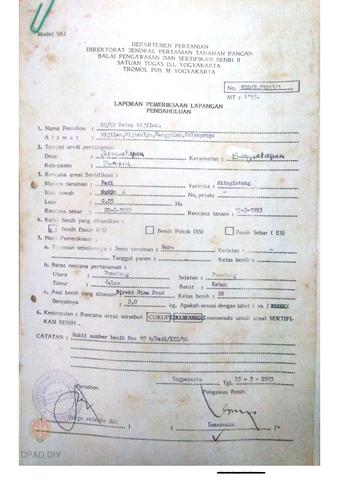 Model SB2
DEPARTEMEN PERTANIAN
DIREKTORAT JENDRAL PERTANIAN TANAMAN PANGAN
BALAI PENGAWASAN DAN SERTIFIKASI BENIH II
SATUAN TUGAS D.I. YOGYAKARTA
TROMOL POS 38 YOGYAKARTA
No.
MT :
LAPORAN PEMERIKSAAN LAPANGAN
PENDAHULUAN
1. Nama Pemohon : BS/BP Balen Wijilan.
Alamat : Wijilan,Wijimulyo,Nanggulan,Kulonprogo
2. Tempat areal pertanaman:
Desa : Kecamatan :
Kabupaten :
3. Rencana areal Sertifikasi :
Macam tanaman : Padi Varietas : Situgintung
Blok sawah : No. petak : -
Luas : 0.05 Ha
Rencana sebar : Rencana tanam : -3-1993
4. Kelas Benih yang dihasilkan :
Benih Dasar (FS) Benih Pokok (SS) Benih Sebar ( ES)
5. Hasil Pemeriksaan :
a. Tanaman sebelumnya : Jenis tanaman : Bero Varietas : -
Tanggal panen : Kelas benih :
b. Batas rencana pertanaman :
Utara : Pematang Selatan : Pematang
Timur : Jalan Barat : Kebun
c. Asal benih yang ditanam : Direkt Bina Prod Kelas benih : BS
Banyaknya : 2,0 kg. Apakah sesuai dengan label : ya /
6. Kesimpulan : Rencana areal tersebut CUKUP memenuhi untuk areal SERTIFI-
KASI BENIH .
CATATAN : Bukti sumber benih No: 47 b/Padi/XII/92
Yogyakarta Tgl. 15 - 3 - 1993
Pemohon Pengawas Benih
DPAD DIY